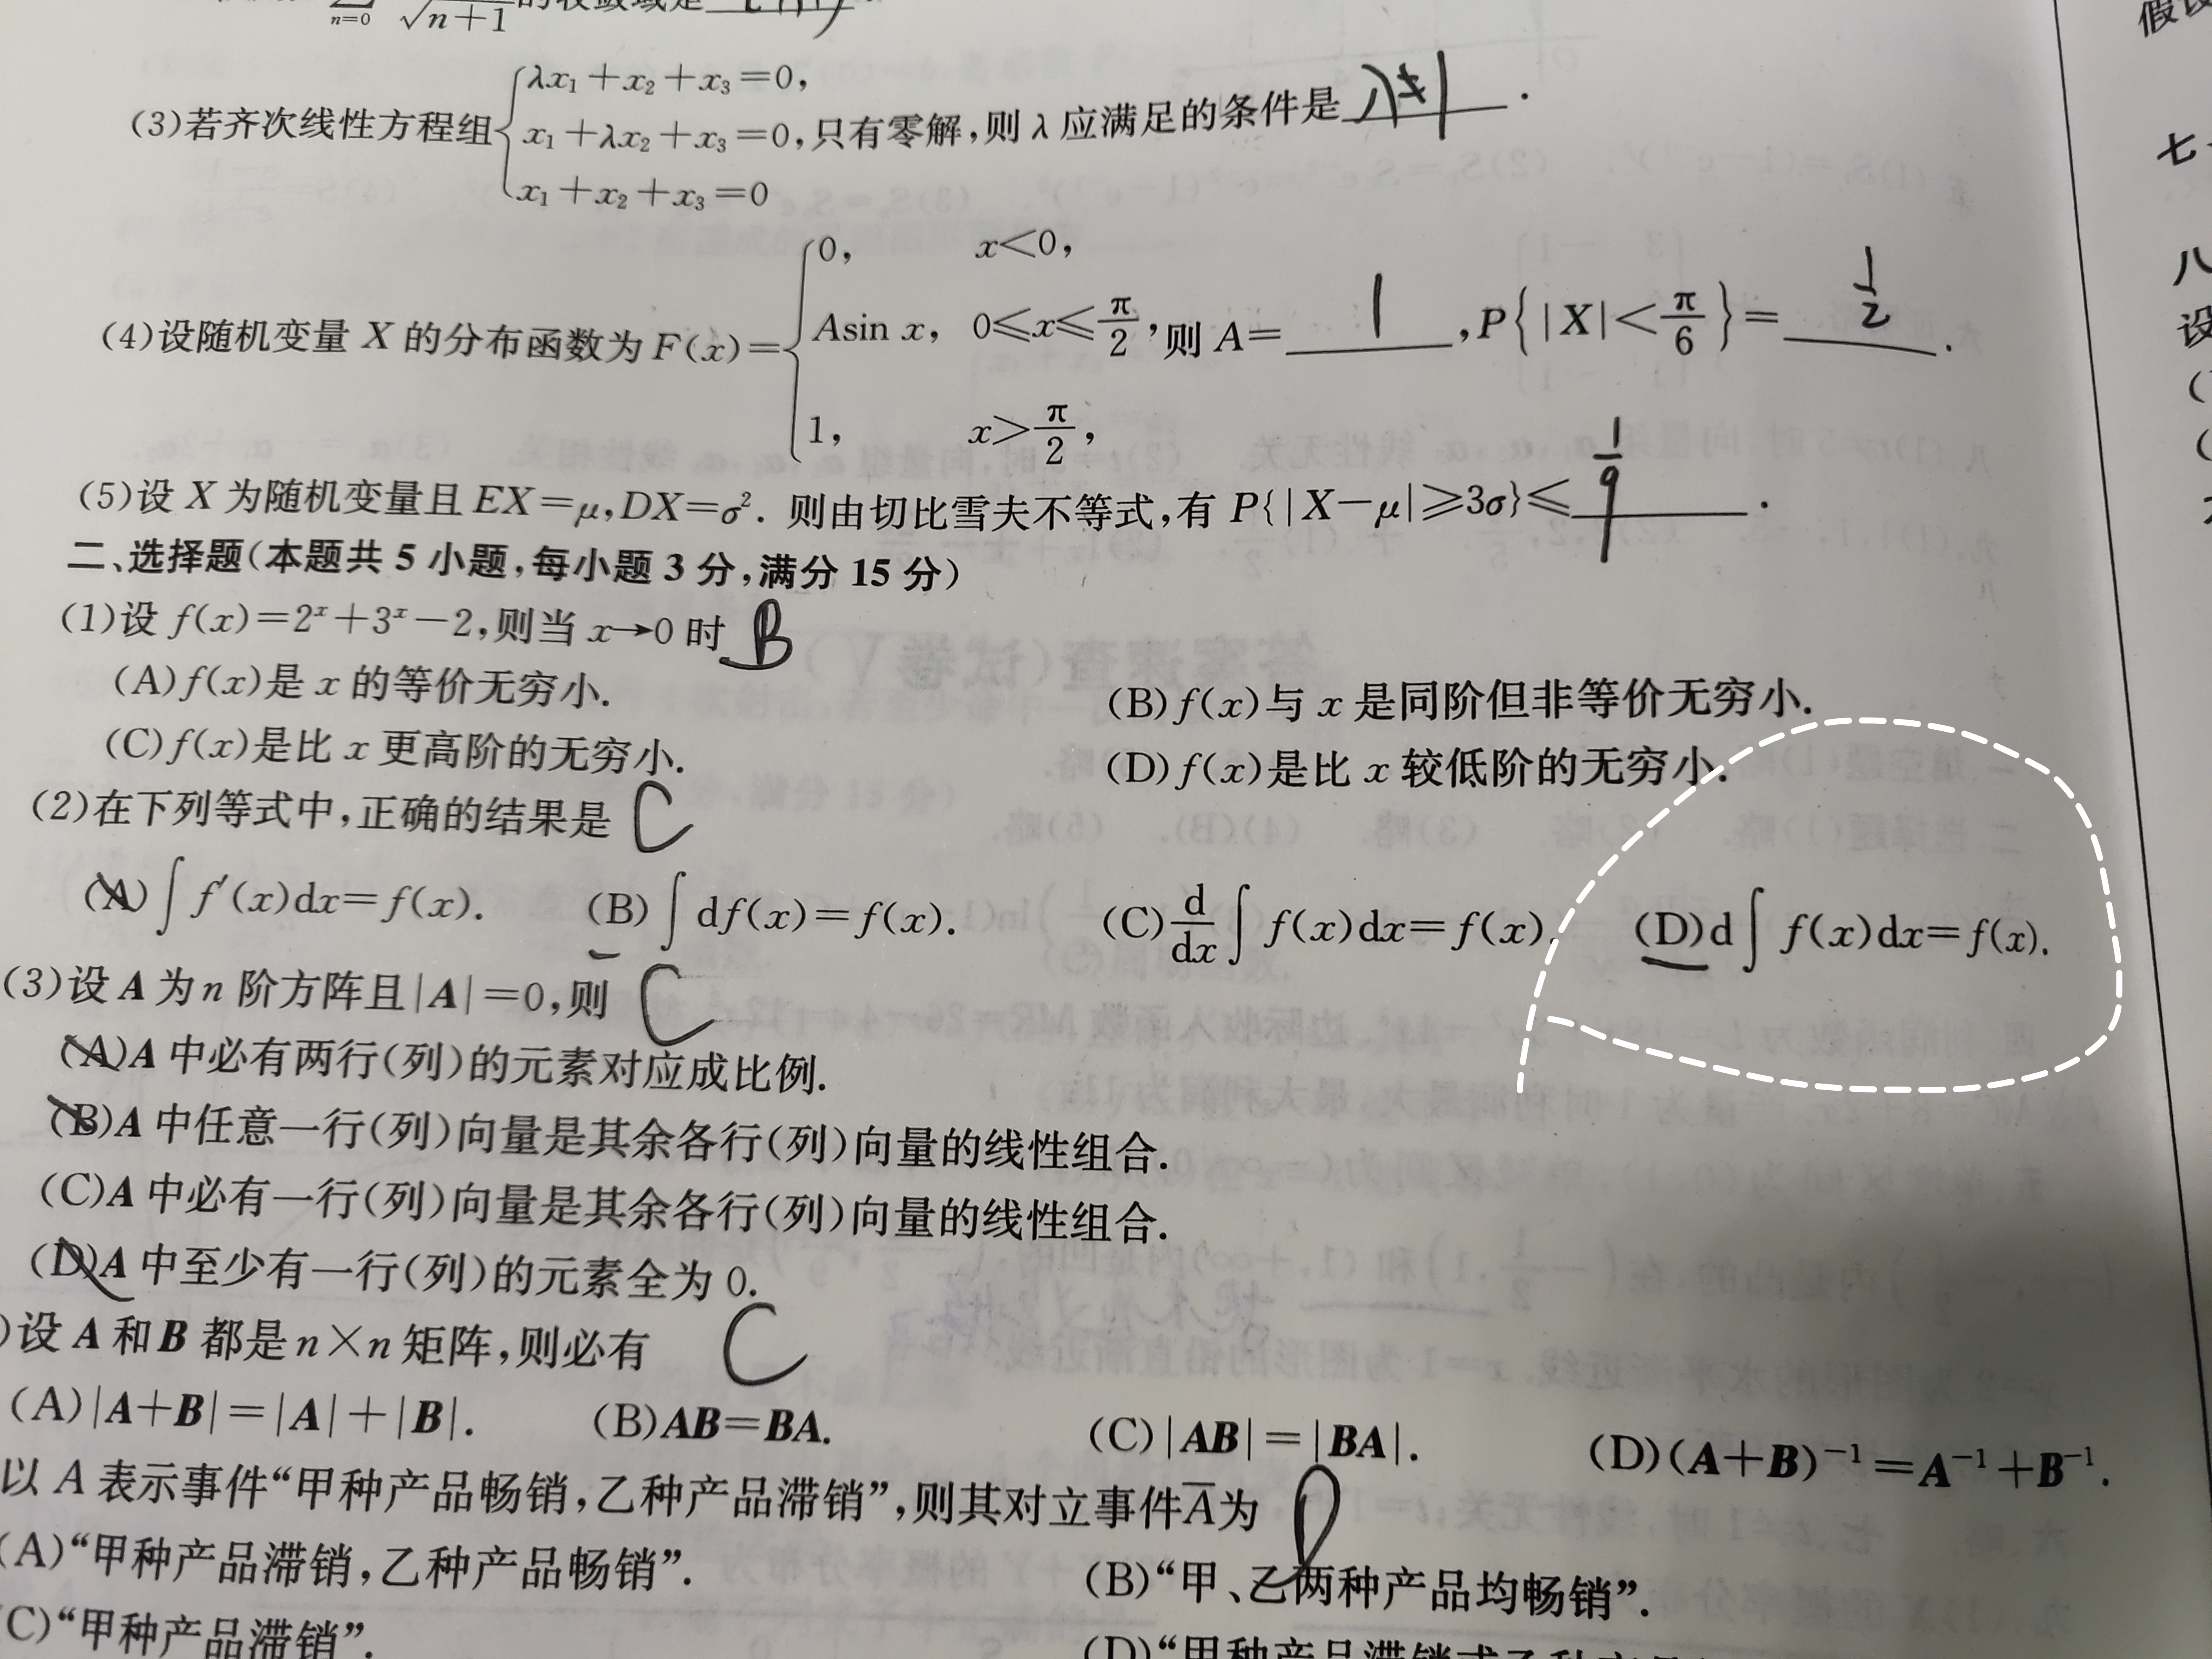 $\sum_{n=0}$ $\sqrt{n+1}$ 的收敛域是
(3)若齐次线性方程组 $\begin{cases}\lambda x_1+x_2+x_3=0,\\ x_1+\lambda x_2+x_3=0,\\ x_1+x_2+x_3=0\end{cases}$ 只有零解,则 λ 应满足的条件是 λ≠1 .
(4)设随机变量 X 的分布函数为 $F(x)=\begin{cases}0, & x<0,\\ A\sin x, & 0\leqslant x\leqslant \frac{\pi}{2},\\ 1, & x>\frac{\pi}{2},\end{cases}$ 则 A= 1 ,$P\{|X|<\frac{\pi}{6}\}$= $\frac{1}{2}$ .
(5)设 X 为随机变量且 EX=μ,DX=σ². 则由切比雪夫不等式,有 P{|X-μ|≥3σ}≤ $\frac{1}{9}$ .
二、选择题(本题共 5 小题,每小题 3 分,满分 15 分)
(1)设 $f(x)=2^x+3^x-2$,则当 x→0 时 B
(A)f(x)是 x 的等价无穷小. (B)f(x)与 x 是同阶但非等价无穷小.
(C)f(x)是比 x 更高阶的无穷小. (D)f(x)是比 x 较低阶的无穷小.
(2)在下列等式中,正确的结果是 C
(A)∫f′(x)dx=f(x). (B)∫df(x)=f(x). (C)$\frac{d}{dx}$∫f(x)dx=f(x). (D)d∫f(x)dx=f(x).
(3)设 A 为 n 阶方阵且|A|=0,则 C
(A)A 中必有两行(列)的元素对应成比例.
(B)A 中任意一行(列)向量是其余各行(列)向量的线性组合.
(C)A 中必有一行(列)向量是其余各行(列)向量的线性组合.
(D)A 中至少有一行(列)的元素全为 0.
)设 A 和 B 都是 n×n 矩阵,则必有 C
(A)|A+B|=|A|+|B|. (B)AB=BA. (C)|AB|=|BA|. (D)$(A+B)^{-1}=A^{-1}+B^{-1}$.
以 A 表示事件“甲种产品畅销,乙种产品滞销”,则其对立事件$\overline{A}$为
(A)“甲种产品滞销,乙种产品畅销”. (B)“甲、乙两种产品均畅销”.
(C)“甲种产品滞销”. (D)“甲种产品滞销或乙种产品
假设
七、
八
设